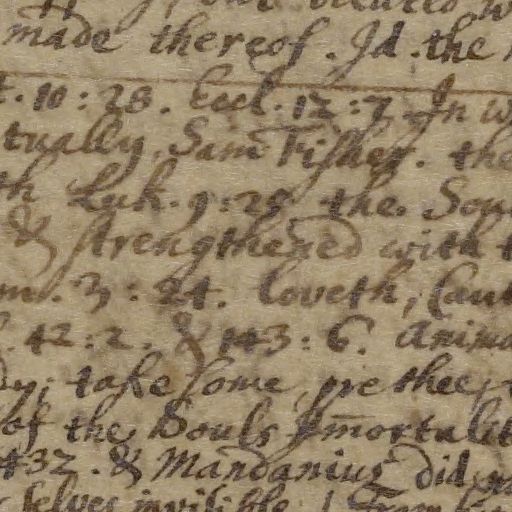 made thereof. Id. the
t. 10 : 28. Eccl. 12 : 7. In w
tually, Sam Fisher. the
th Luk. 9 : 25 the. Soul
& strengthened with t
m. 3 : 24. loveth, Cant
. 42 : 2. & 143 : 6. Anima
dy; take some, prethee,
of the Souls Im̄ortalit
432. & Mandanius did
selves invisible